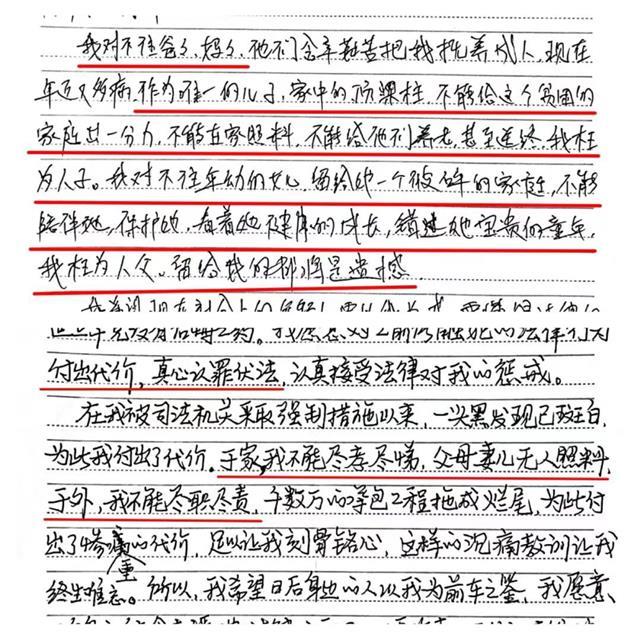 我对不住爸爸、妈妈，他们含辛茹苦把我抚养成人，现在
年迈又多病，作为唯一的儿子，家中的顶梁柱，不能给这个贫困的
家庭出一分力，不能在家照料，不能给他们养老，甚至送终，我枉
为人子。我对不住年幼的女儿，留给她一个破碎的家庭，不能
陪伴她，保护她，看着她健康的成长，错过她宝贵的童年，
我枉为人父，留给我的都将是遗憾
付出代价，真心认罪伏法，认真接受法律对我的惩戒。
在我被司法机关采取强制措施以来，一头黑发现已斑白，
为此我付出了代价。于家，我不能尽孝尽悌，父母妻儿无人照料，
于外，我不能尽职尽责，千数万的承包工程拖成烂尾，为此付
出了惨重的代价，足以让我刻骨铭心，这样的沉痛教训让我
终生难忘。所以，我希望日后身边的人以我为前车之鉴，我愿意、